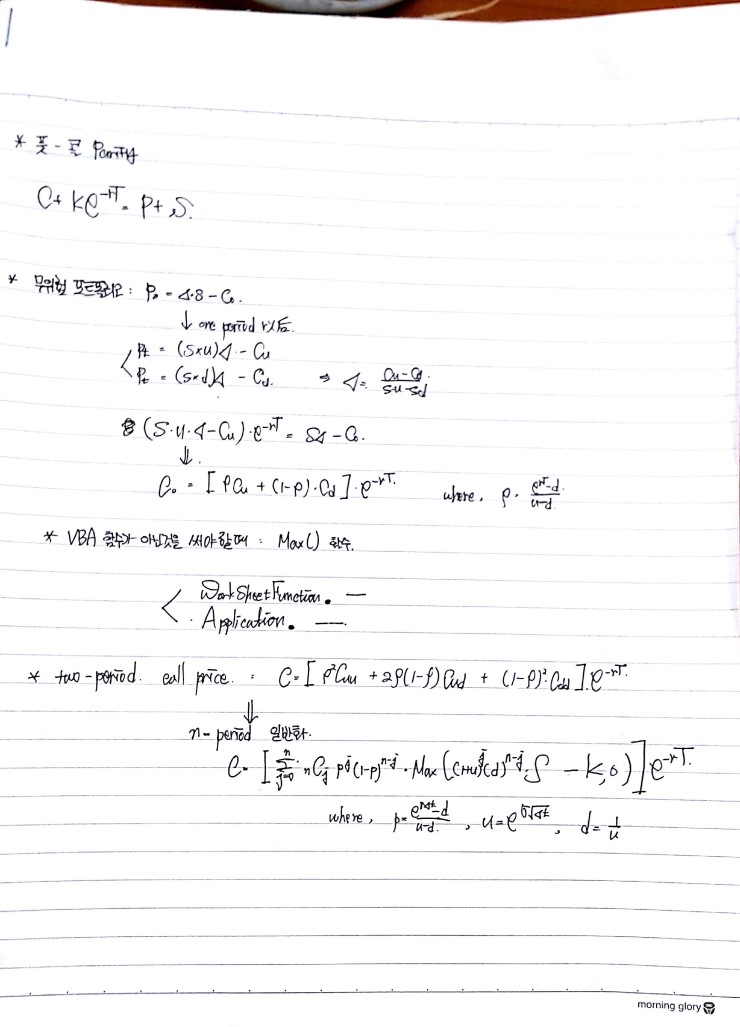 * 풋-콜 Parity
C+ Ke^-rT = P+S.
* 무위험 포트폴리오 : P₀ = Δ·S - C₀.
↓ one period 이후.
Pt = (S×u)Δ - Cu
Pt = (S×d)Δ - Cd. ⇒ Δ = (Cu-Cd)/(Su-Sd)
(S·u·Δ-Cu)·e^-rT = SΔ - C₀.
⇓.
C₀ = [ PCu + (1-p)·Cd ]·e^-rT. where, p = (e^rT-d)/(u-d).
* VBA 함수가 아닌것을 써야할때 : Max() 함수.
< WorkSheetFunction. —
Application. —.
* two-period. call price. : C=[ p²Cuu + 2p(1-p)Cud + (1-p)²Cdd ].e^-rT.
⇓
n-period 일반화.
C = [ Σ(j=0, n) nCj p^j (1-p)^n-j · Max( (1+u)^j (d)^n-j · S - K, 0 ) ] e^-rT.
where, p = (e^rΔt-d)/(u-d), u = e^σ√Δt, d = 1/u
morning glory